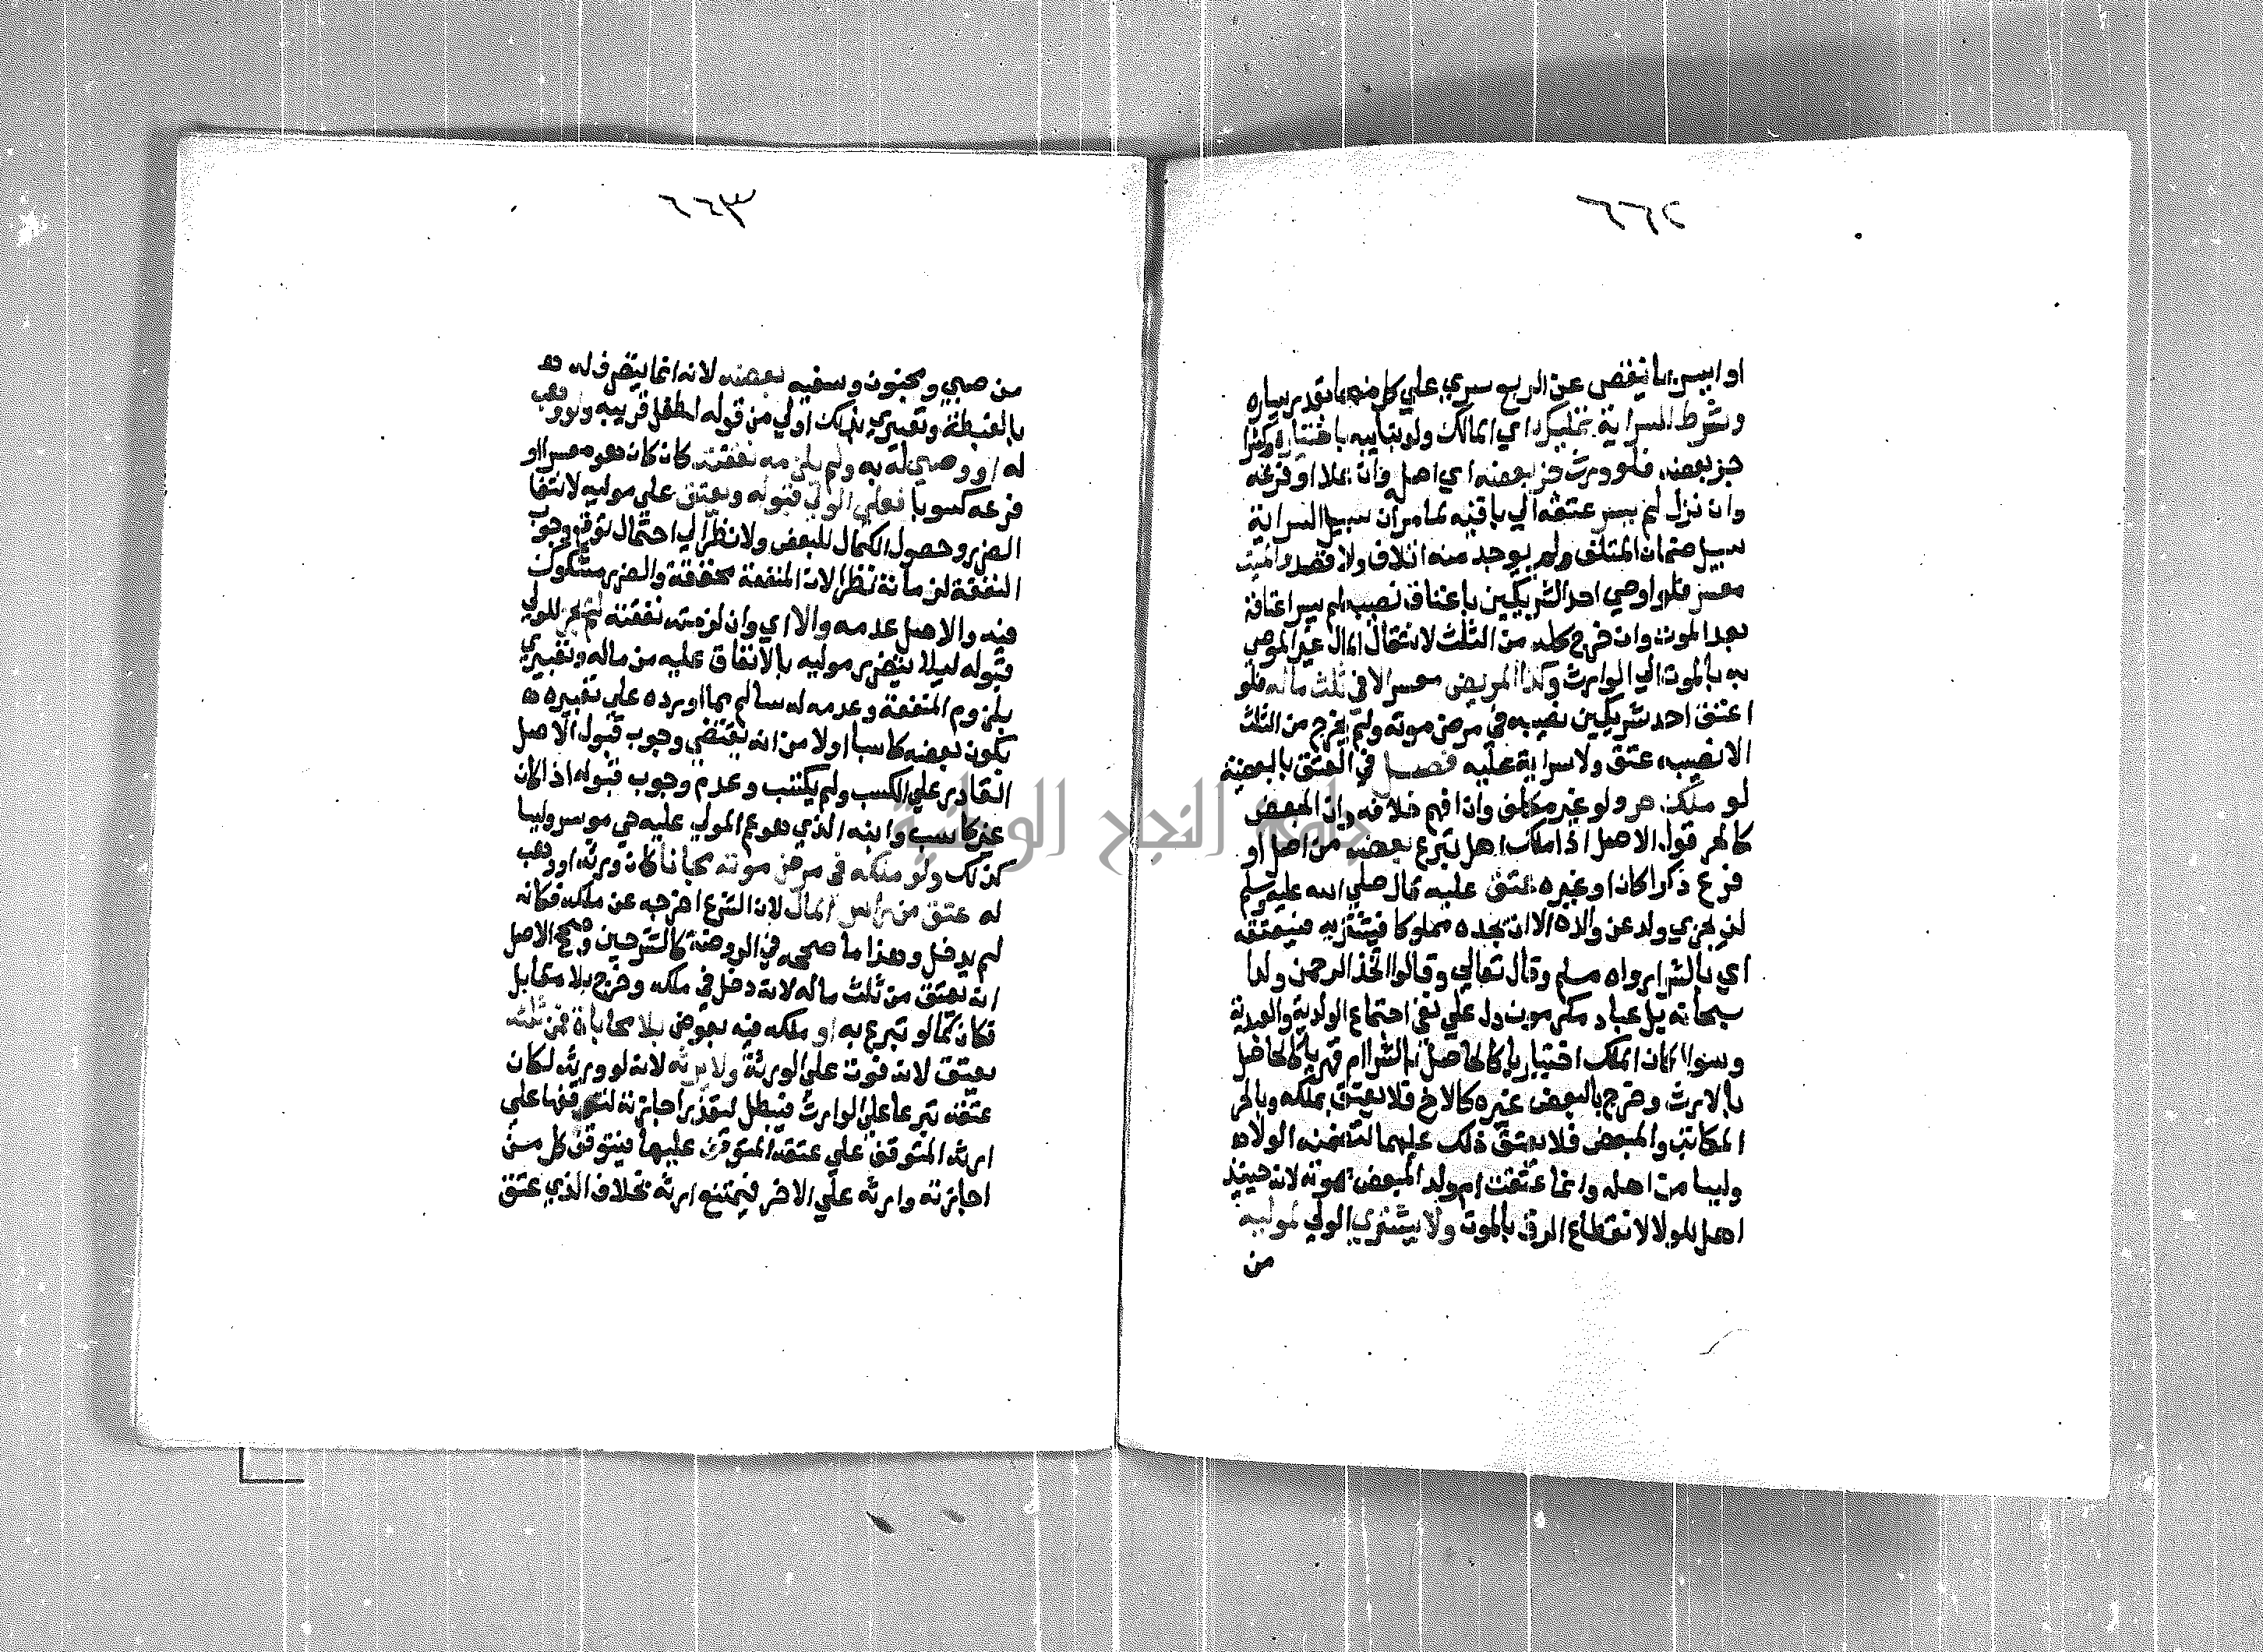 ٦٦٢
او ايسرا بما ينقص عن الربع سري علي كل منهما بقدر يساره
وشرط السراية تملكه اي المالك ولو بنايبه باختياره كشرا
جز بعضه فلو ورث جز بعضه اي اصله وان علا او فرعه
وان نزل لم يسر عتقه الي باقيه لما مر ان سبيل السراية
سبيل ضمان المتلف ولم يوجد منه اتلاف ولا قصد والميت
معسر فلو اوصي احد الشريكين باعتاق نصيبه لم يسر اعتاقه
بعد الموت وان خرج كله من الثلث لانتقال المال غير الموصي
به بالموت الي الوارث وكذا المريض معسر الا في ثلث ماله فلو
اعتق احد شريكين نصيبه في مرض موته ولم يخرج من الثلث
الا نصيبه عتق ولا سراية عليه فصل في العتق بالبعضية
لو ملك حر ولو غير مكلف وان افهم خلافه وان المبعض
كالحر قول الاصل اذا ملك اهل تبرع بعضه من اصل او
فرع ذكرا كان او غيره عتق عليه قال صلي الله عليه وسلم
لن يجزي ولد عن والده الا ان يجده مملوكا فيشتريه فيعتقه
اي بالشرا رواه مسلم وقال تعالي وقالوا اتخذ الرحمن ولدا
سبحانه بل عباد مكرمون دل علي نفي اجتماع الولدية والعبدية
وسوا اكان الملك اختياريا كالحاصل بالشرا ام قهريا كالحاصل
بالارث وخرج بالبعض غيره كالاخ فلا يعتق بملكه وبالحر
المكاتب والمبعض فلا يعتق ذلك عليهما لتضمنه الولاء
وليسا من اهله وانما عتقت ام ولد المبعض بموته لانه حينيذ
اهل للولا لانقطاع الرق بالموت ولا يشتري الولي لموليه
من
٦٦٣
من صبي ومجنون وسفيه بعضه لانه انما يتصرف له
بالغبطة وتعبيري بذلك اولي من قوله لطفل قريبه ولو وهب
له او وصي له به ولم يلزمه نفقته كان كان هو معسرا او
فرعه كسوبا فعلي الولي قبوله ويعتق علي موليه لانتفا
الضرر وحصول الكمال للبعض ولا نظر الي احتمال توقع وجوب
النفقة لزمانة تطرا لان المنفعة محققة والضرر مشكوك
فيه والاصل عدمه والا اي وان لزمته نفقته لم يجز للولي
قبوله ليلا يتضرر موليه بالانفاق عليه من ماله وتعبيري
بلزوم النفقة وعدمه له سالم مما اورده علي تعبيره
بكون بعضه كاسبا اولا من انه يقتضي وجوب قبول الاصل
القادر علي الكسب ولم يكتسب وعدم وجوب قبوله اذا كان
غير كاسب وابنه الذي هو عم المولي عليه حي موسر وليسا
كذلك ولو ملكه في مرض موته مجانا كان ورثه او وهب
له عتق من راس المال لان الشرع اخرجه عن ملكه فكانه
لم يدخل وهذا ما صححه في الروضة كالشرحين وصحح الاصل
انه يعتق من ثلث ماله لانه دخل في ملكه وخرج بلا مقابل
فكان كما لو تبرع به او ملكه فيه بعوض بلا محاباة فمن ثلثه
يعتق لانه فوت علي الورثة ولا يرثه لانه لو ورثه لكان
عتقه تبرعا علي الوارث فيبطل لتعذر اجازته لتوقفها علي
ارثه المتوقف علي عتقه المتوقف عليها فيتوقف كل من
اجازته وارثه علي الاخر فيمتنع ارثه بخلاف الذي عتق
جامعة النجاح الوطنية